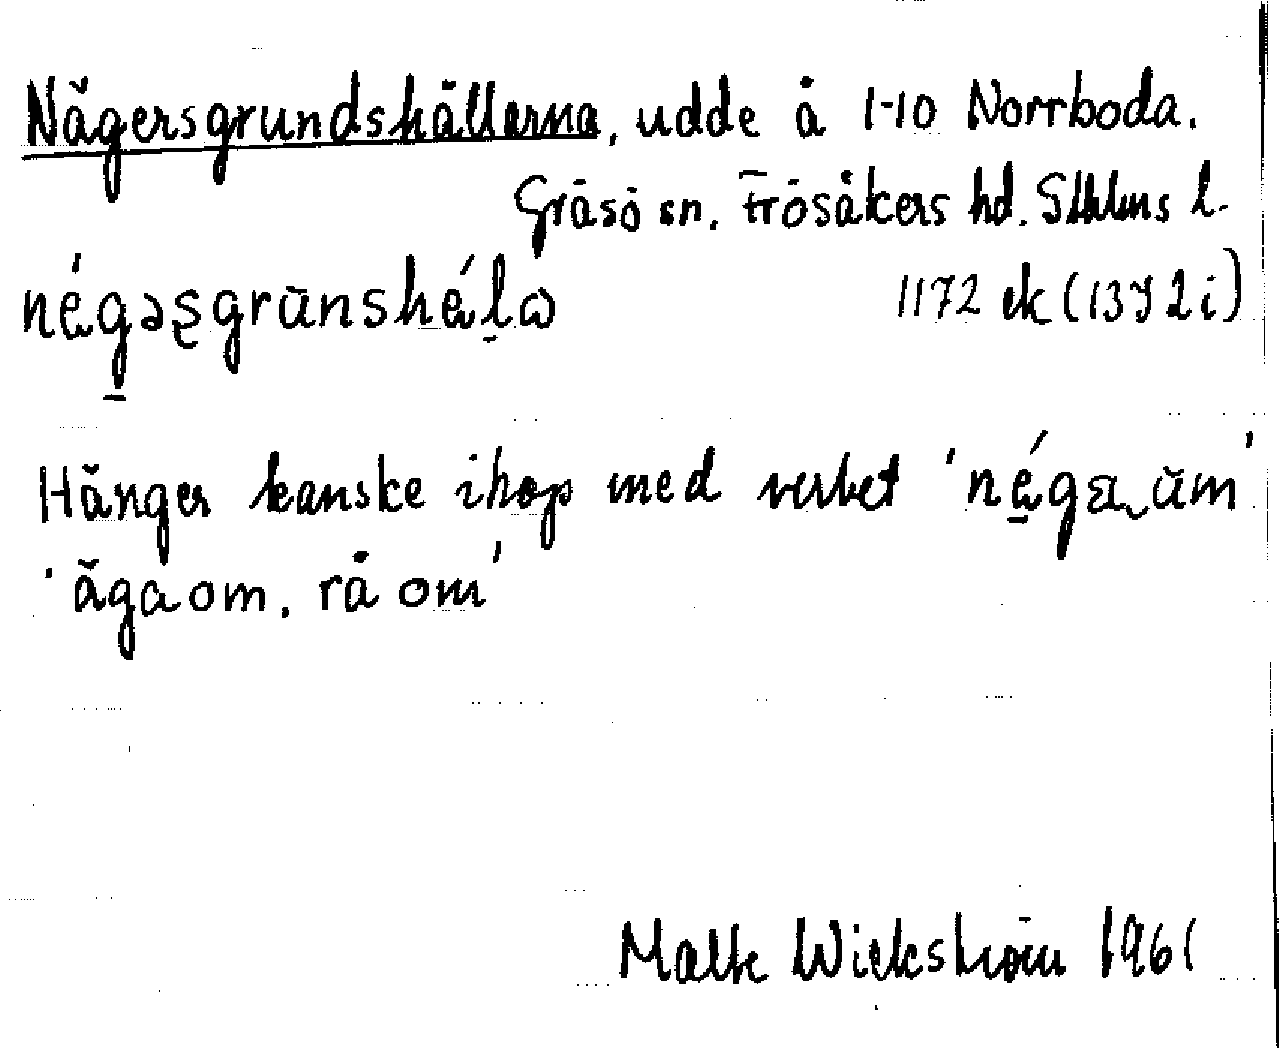 Nägersgrundshällarna, udde å 1-10 Norrboda.
Gräsö sn. Frösåkers hd. Sthlms l.
nǽgəʂgrūnshǽḷa 1172 ek (13Y 2i)
Hänger kanske ihop med verbet 'nǽga ŭm'
'äga om, rå om'
Malte Wickström 1961